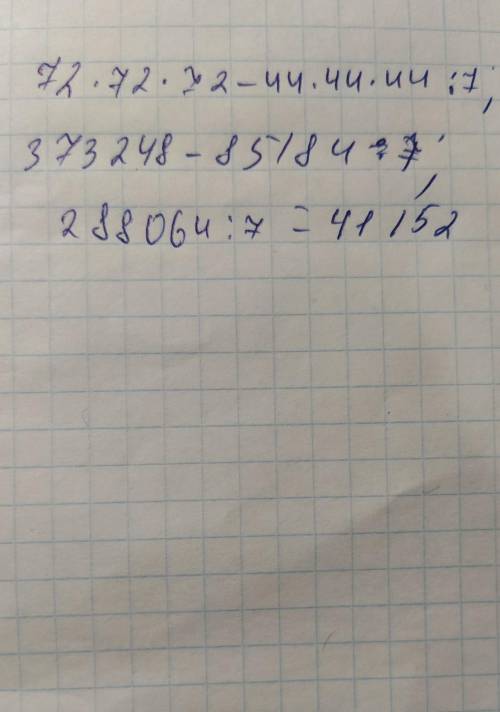 72·72·72-44·44·44:7;
373248-85184:7;
288064:7=41152